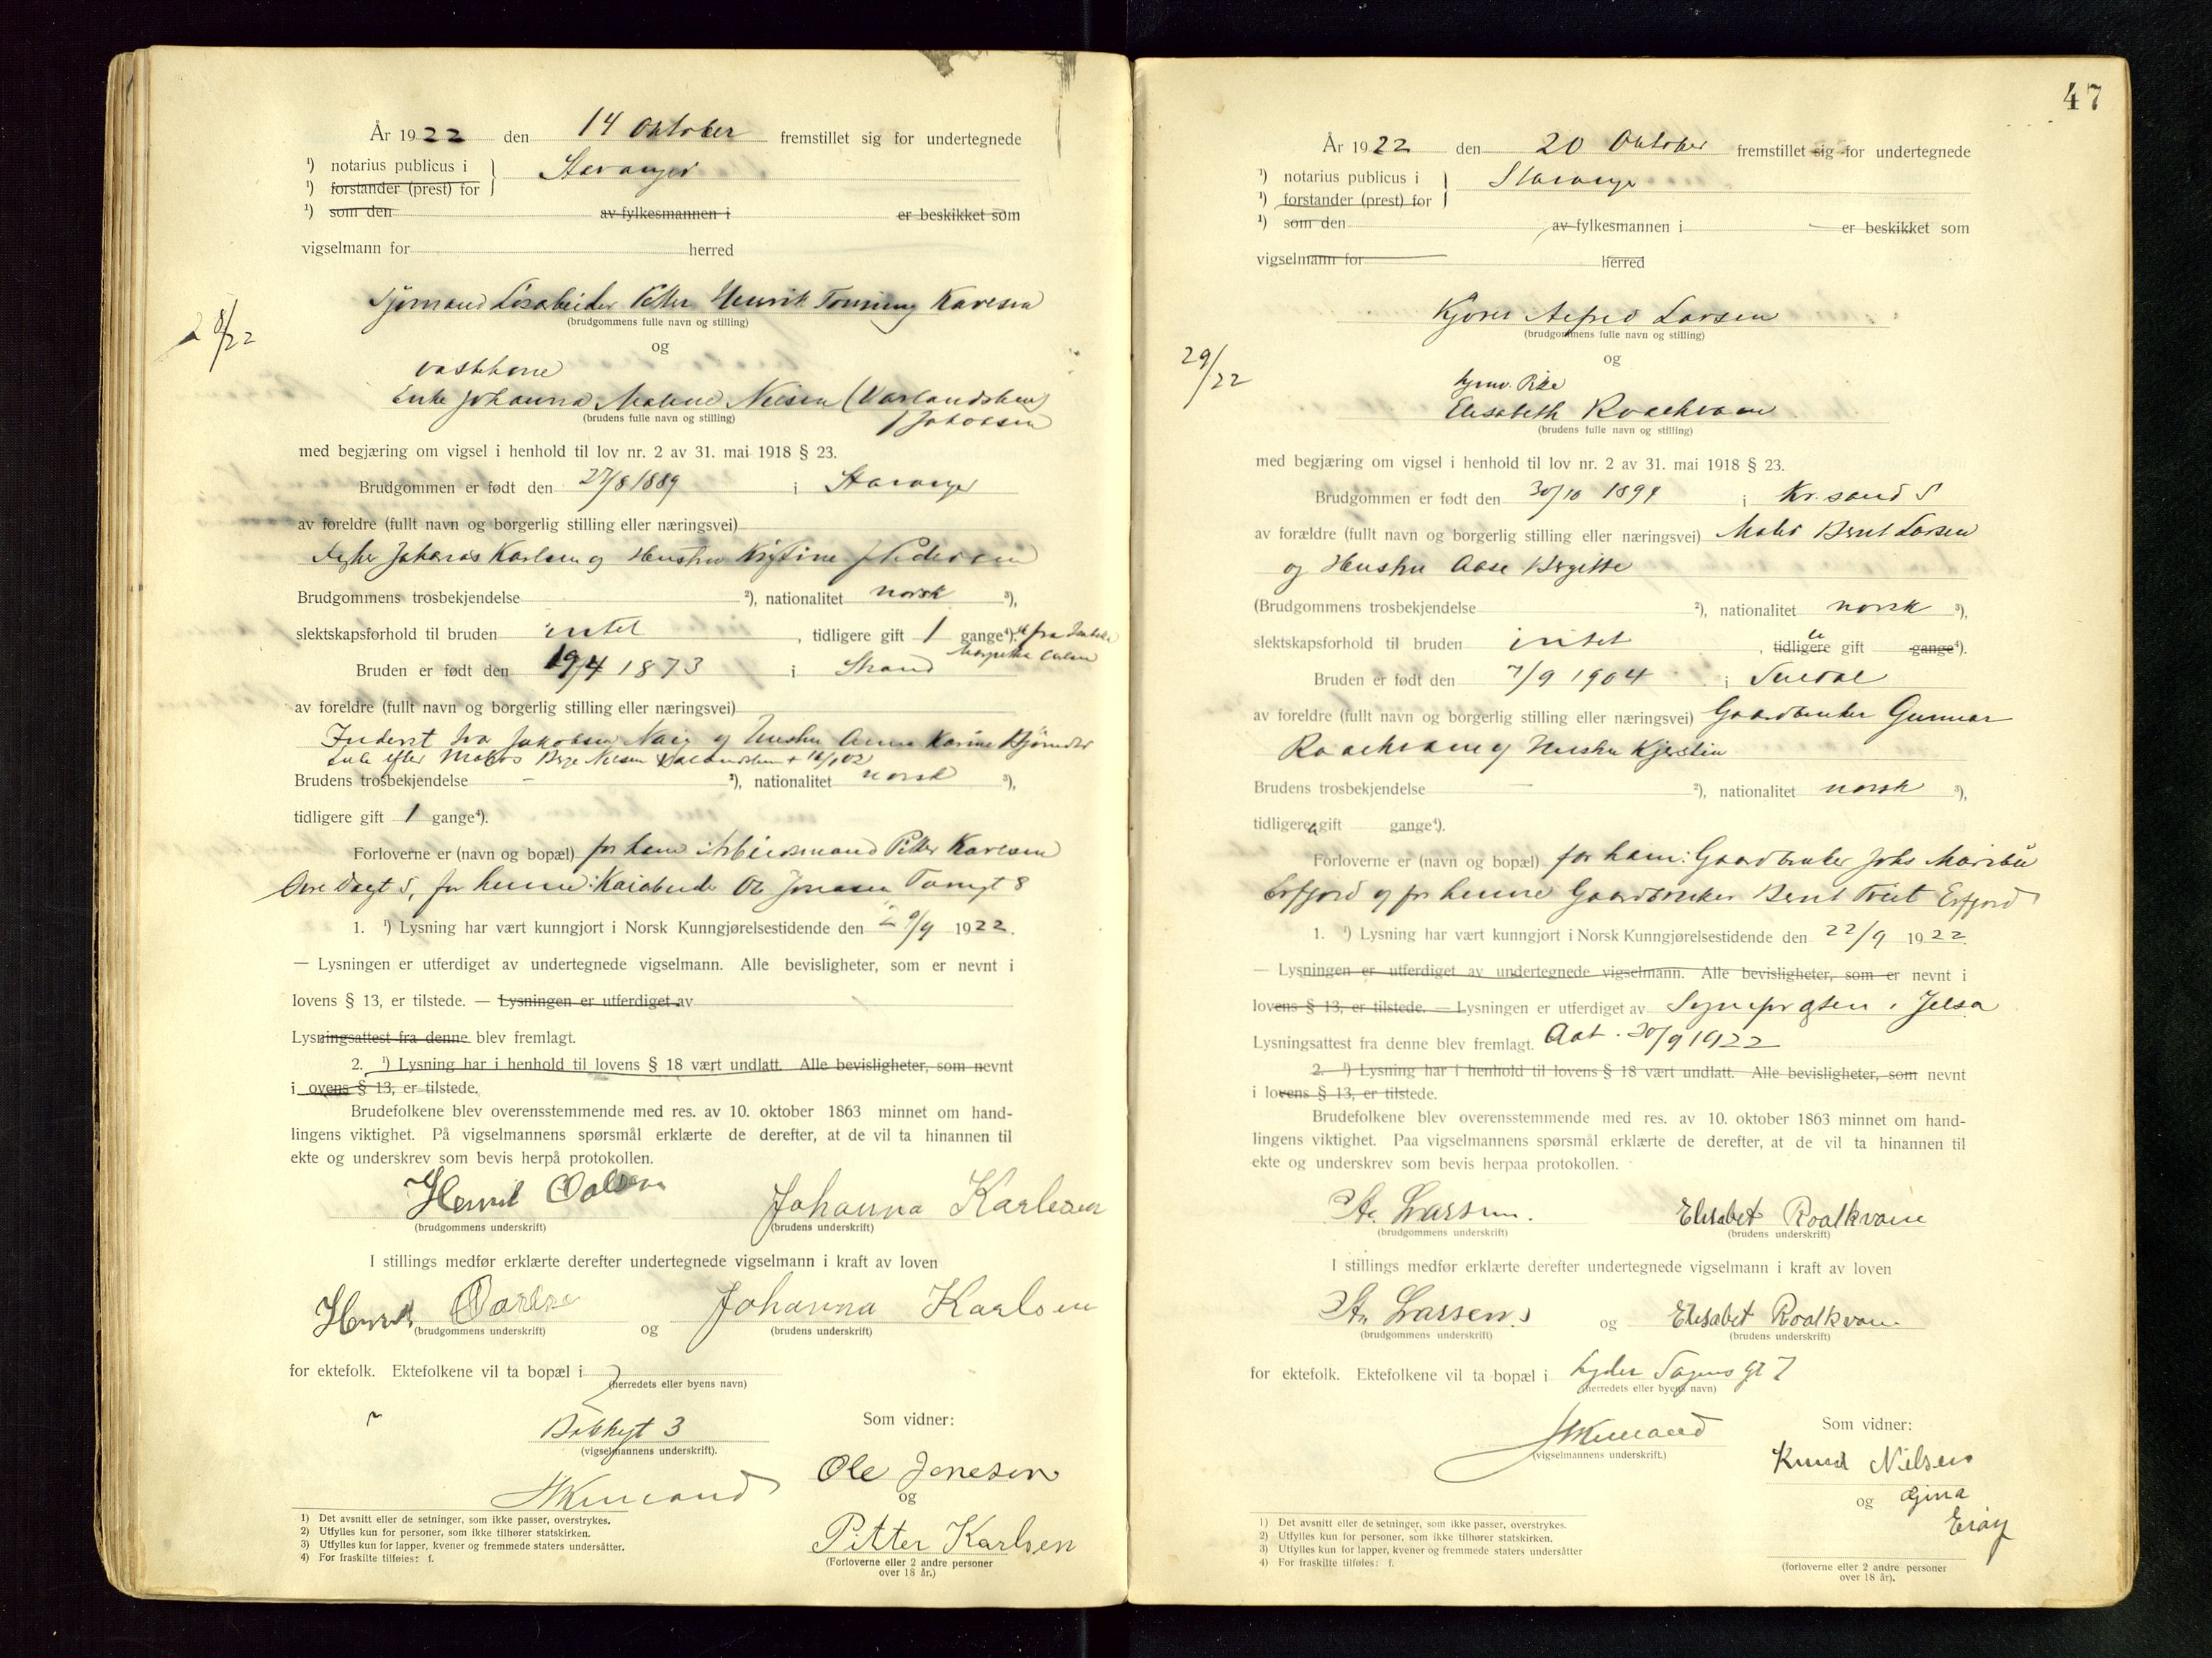 År 1922 den 14 Oktober fremstillet sig for undertegnede
¹) notarius publicus i
¹) forstander (prest) for
Stavanger
¹) som den av fylkesmannen i er beskikket som
vigselmann for herred
28/22
Sjømand Løsarbeider Petter Henrik Tonning Karlsen
(brudgommens fulle navn og stilling)
og
vaskekone
Enke Johanna Malene Nilsen (Vaulandshen)
(brudens fulle navn og stilling)
f Jakobsen
med begjæring om vigsel i henhold til lov nr. 2 av 31. mai 1918 § 23.
Brudgommen er født den 27/8 1889 i Stavanger
av foreldre (fullt navn og borgerlig stilling eller næringsvei)
Johannes Karlsen og Hustru Kristine f Pedersen
Brudgommens trosbekjendelse ²), nationalitet norsk ³),
slektskapsforhold til bruden intet , tidligere gift 1 gange⁴). fra
Bruden er født den 19/4 1873 i Strand
av foreldre (fullt navn og borgerlig stilling eller næringsvei)
Inderst Jakobsen og Hustru Anne Karine
Enke efter Nilsen
Brudens trosbekjendelse - ²), nationalitet norsk ³),
tidligere gift 1 gange⁴).
Forloverne er (navn og bopæl) for ham Arbeidsmand Pitter Karlsen
5, for henne: Kaiarbeider Ole Jonesen 8
1. ¹) Lysning har vært kunngjort i Norsk Kunngjørelsestidende den 29/9 1922.
— Lysningen er utferdiget av undertegnede vigselmann. Alle bevisligheter, som er nevnt i
lovens § 13, er tilstede. — Lysningen er utferdiget av
Lysningsattest fra denne blev fremlagt.
2. ¹) Lysning har i henhold til lovens § 18 vært undlatt. Alle bevisligheter, som nevnt
i ovens § 13, er tilstede.
Brudefolkene blev overensstemmende med res. av 10. oktober 1863 minnet om hand-
lingens viktighet. På vigselmannens spørsmål erklærte de derefter, at de vil ta hinannen til
ekte og underskrev som bevis herpå protokollen.
Henrik Johanna Karlsen
(brudgommens underskrift) (brudens underskrift)
I stillings medfør erklærte derefter undertegnede vigselmann i kraft av loven
Henrik og Johanna Karlsen
(brudgommens underskrift) (brudens underskrift)
for ektefolk. Ektefolkene vil ta bopæl i
(herredets eller byens navn)
3
(vigselmannens underskrift).
Som vidner:
Ole Jonesen
og
Pitter Karlsen
(Forloverne eller 2 andre personer
over 18 år.)
1) Det avsnitt eller de setninger, som ikke passer, overstrykes.
2) Utfylles kun for personer, som ikke tilhører statskirken.
3) Utfylles kun for lapper, kvener og fremmede staters undersåtter.
4) For fraskilte tilføies: f.
47
År 1922 den 20 Oktober fremstillet sig for undertegnede
¹) notarius publicus i
¹) forstander (prest) for
Stavanger
¹) som den av fylkesmannen i er beskikket som
vigselmann for herred
29/22
Kjører Alfred Larsen
(brudgommens fulle navn og stilling)
og
hjemv. Pike
Elisabeth Roaldkvam
(brudens fulle navn og stilling)
med begjæring om vigsel i henhold til lov nr. 2 av 31. mai 1918 § 23.
Brudgommen er født den 30/10 1899 i Kr.sand S
av forældre (fullt navn og borgerlig stilling eller næringsvei) Maler Bernt Larsen
og Hustru Aase Bergitte
(Brudgommens trosbekjendelse ²), nationalitet norsk ³),
slektskapsforhold til bruden intet , tidligere gift gange⁴).
Bruden er født den 7/9 1904 i Suldal
av foreldre (fullt navn og borgerlig stilling eller næringsvei) Gaardbruker Gunnar
Roaldkvam og Hustru Kjerstin
Brudens trosbekjendelse - ²), nationalitet norsk ³),
tidligere gift gange⁴).
Forloverne er (navn og bopæl) for ham: Gaardbruker Johs Maribu
Erfjord og for henne Gaardbruker Bernt Tveit Erfjord
1. ¹) Lysning har vært kunngjort i Norsk Kunngjørelsestidende den 22/9 1922.
— Lysningen er utferdiget av undertegnede vigselmann. Alle bevisligheter, som er nevnt i
lovens § 13, er tilstede. — Lysningen er utferdiget av Sognepresten i Jelsa
Lysningsattest fra denne blev fremlagt. Dat. 30/9 1922
2. ¹) Lysning har i henhold til lovens § 18 vært undlatt. Alle bevisligheter, som nevnt
i lovens § 13, er tilstede.
Brudefolkene blev overensstemmende med res. av 10. oktober 1863 minnet om hand-
lingens viktighet. Paa vigselmannens spørsmål erklærte de derefter, at de vil ta hinannen til
ekte og underskrev som bevis herpaa protokollen.
A. Larsen. Elisabet Roalkvam
(brudgommens underskrift) (brudens underskrift)
I stillings medfør erklærte derefter undertegnede vigselmann i kraft av loven
A. Larsen og Elisabet Roalkvam
(brudgommens underskrift) (brudens underskrift)
for ektefolk. Ektefolkene vil ta bopæl i Lyder Sagens gt 7
(herredets eller byens navn)
(vigselmannens underskrift.)
Som vidner:
Knud Nilsen
og Gina
(forloverne eller 2 andre personer
over 18 år).
1) Det avsnitt eller de setninger, som ikke passer, overstrykes.
2) Utfylles kun for personer, som ikke tilhører statskirken.
3) Utfylles kun for lapper, kvener og fremmede staters undersåtter
4) For fraskilte tilføies: f.